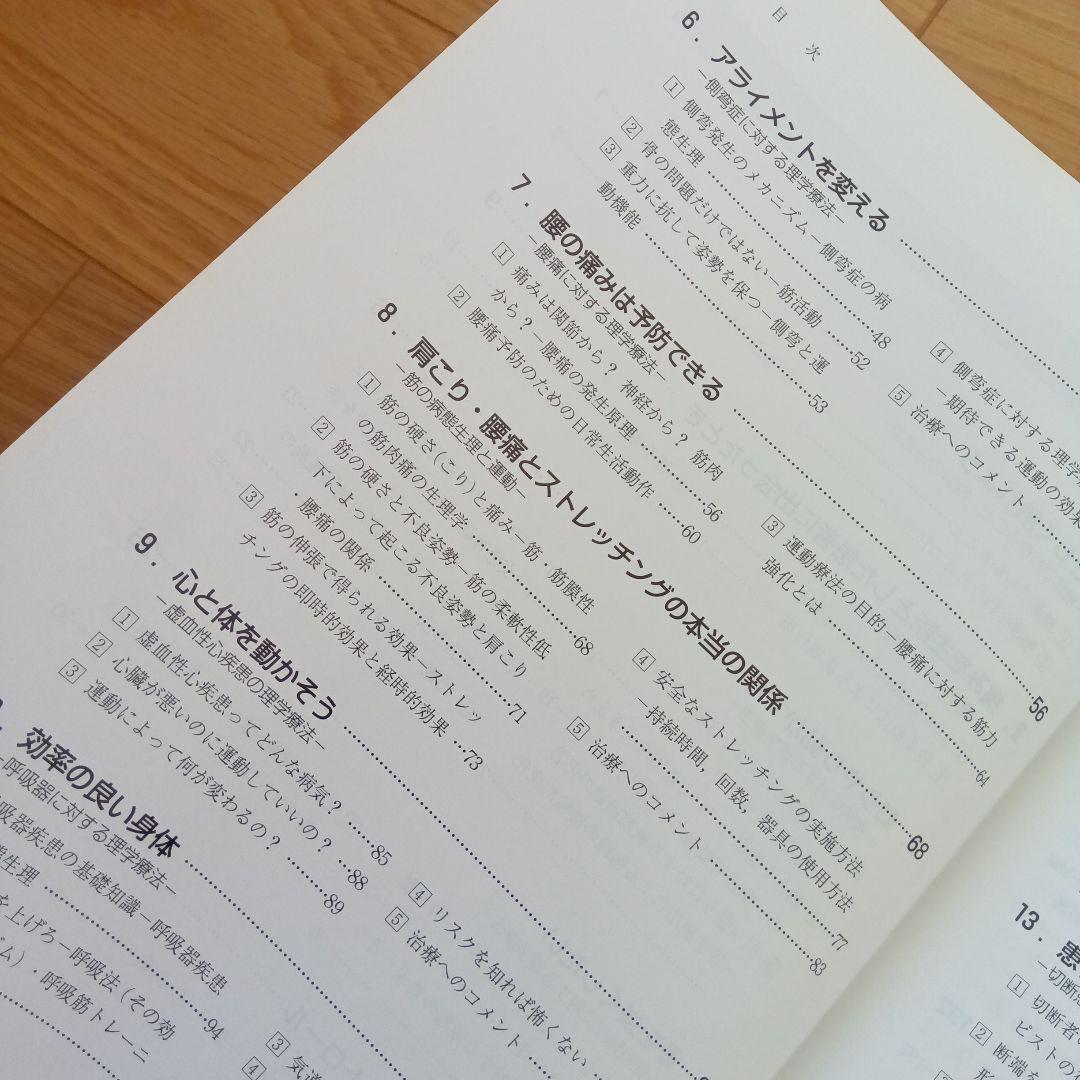 目次
6．アライメントを変える
－側弯症に対する理学療法－
1 側弯発生のメカニズム－側弯症の病
態生理 48
2 骨の問題だけではない－筋活動 52
3 重力に抗して姿勢を保つ－側弯と運
動機能 53
4 側弯症に対する理学
－期待できる運動の効果
5 治療へのコメント
7．腰の痛みは予防できる 56
－腰痛に対する理学療法－
1 痛みは関節から？ 神経から？ 筋肉
から？－腰痛の発生原理 56
2 腰痛予防のための日常生活動作 60
3 運動療法の目的－腰痛に対する筋力
強化とは 64
8．肩こり・腰痛とストレッチングの本当の関係 68
－筋の病態生理と運動－
1 筋の硬さ(こり)と痛み－筋・筋膜性
の筋肉痛の生理学 68
2 筋の硬さと不良姿勢－筋の柔軟性低
下によって起こる不良姿勢と肩こり
・腰痛の関係 71
3 筋の伸張で得られる効果－ストレッ
チングの即時的効果と経時的効果 73
4 安全なストレッチングの実施方法
－持続時間，回数，器具の使用方法 77
5 治療へのコメント 83
9．心と体を動かそう
－虚血性心疾患の理学療法－
1 虚血性心疾患ってどんな病気？ 85
2 心臓が悪いのに運動していいの？ 88
3 運動によって何が変わるの？ 89
4 リスクを知れば怖くない
5 治療へのコメント
効率の良い身体
－呼吸器に対する理学療法－
吸器疾患の基礎知識－呼吸器疾患
態生理
を上げろ－呼吸法（その効
ズム）・呼吸筋トレーニ
94
3 気道
4
13．患
－切断
1 切断者
ピストの
2 断端を
形